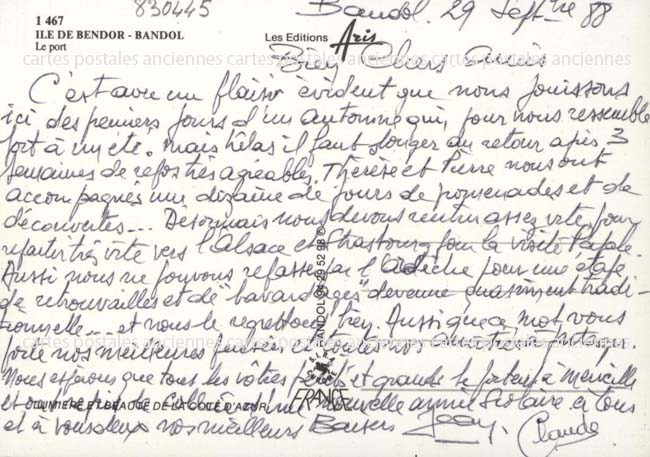 830445
1 467
ILE DE BENDOR - BANDOL
Le port
Les Editions Aris
Bandol. 29 Septbre 88
cartes postales anciennes cartes postales anciennes cartes postales anciennes
Bien Chers Amis
C'est avec un plaisir évident que nous jouissons
ici des premiers jours d'un automne qui, pour nous ressemble
fort à un été. Mais hélas il faut songer au retour après 3
semaines de repos très agréables. Thérèse et Pierre nous ont
accompagnés une dizaine de jours de promenades et de
découvertes... Désormais nous devons rentrer assez vite, pour
repartir très vite vers l'Alsace et Strasbourg pour la visite Papale.
Aussi nous ne pouvons repasser par l'Ardèche pour une étape
de retrouvailles et de "bavardages" devenue quasiment tradi-
tionnelle.... et nous le regrettons bien. Aussi que ce mot vous
porte nos meilleures pensées et toutes nos amitiés
cartes postales anciennes cartes postales anciennes
Nous espérons que tous les vôtres et grands se portent à merveille
et nouvelle année scolaire. à tous
LUMIERE ET BEAUTE DE LA COTE D'AZUR
FRANCE
et à vous deux nos meilleurs Baisers Jean, Claude
BANDOL 94 29 52 88